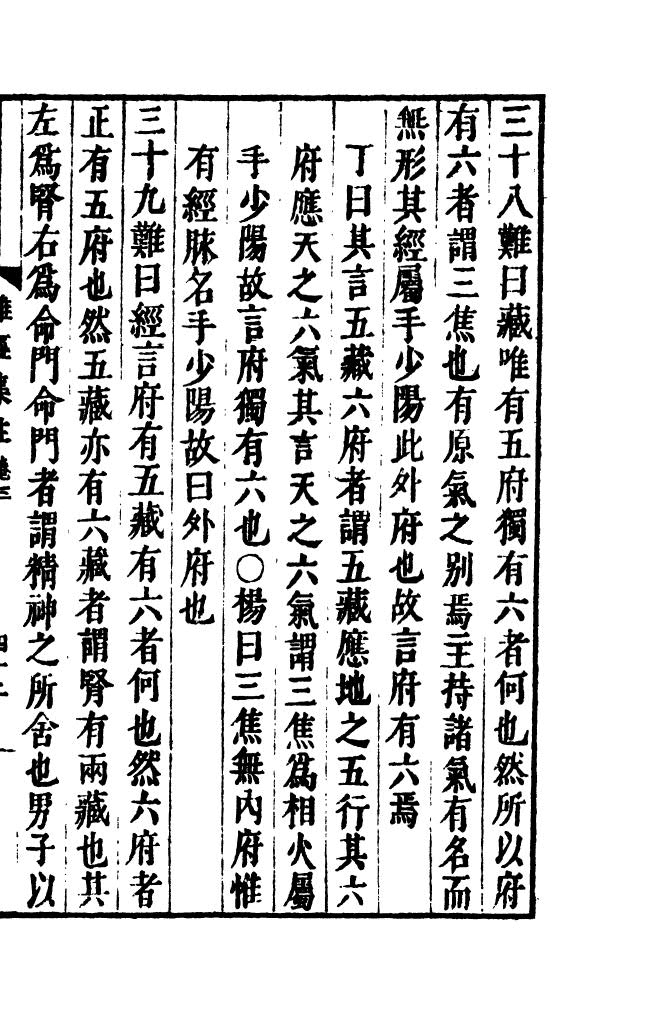 三十八難曰藏唯有五府獨有六者何也然所以府
有六者謂三焦也有原氣之别焉主持諸氣有名而
無形其經屬手少陽此外府也故言府有六焉
丁曰其言五藏六府者謂五藏應地之五行其六
府應天之六氣其言天之六氣謂三焦為相火屬
手少陽故言府獨有六也○楊曰三焦無內府惟
有經脉名手少陽故曰外府也
三十九難曰經言府有五藏有六者何也然六府者
正有五府也然五藏亦有六藏者謂腎有兩藏也其
左為腎右為命門命門者謂精神之所舍也男子以
難經集註卷三
四十二